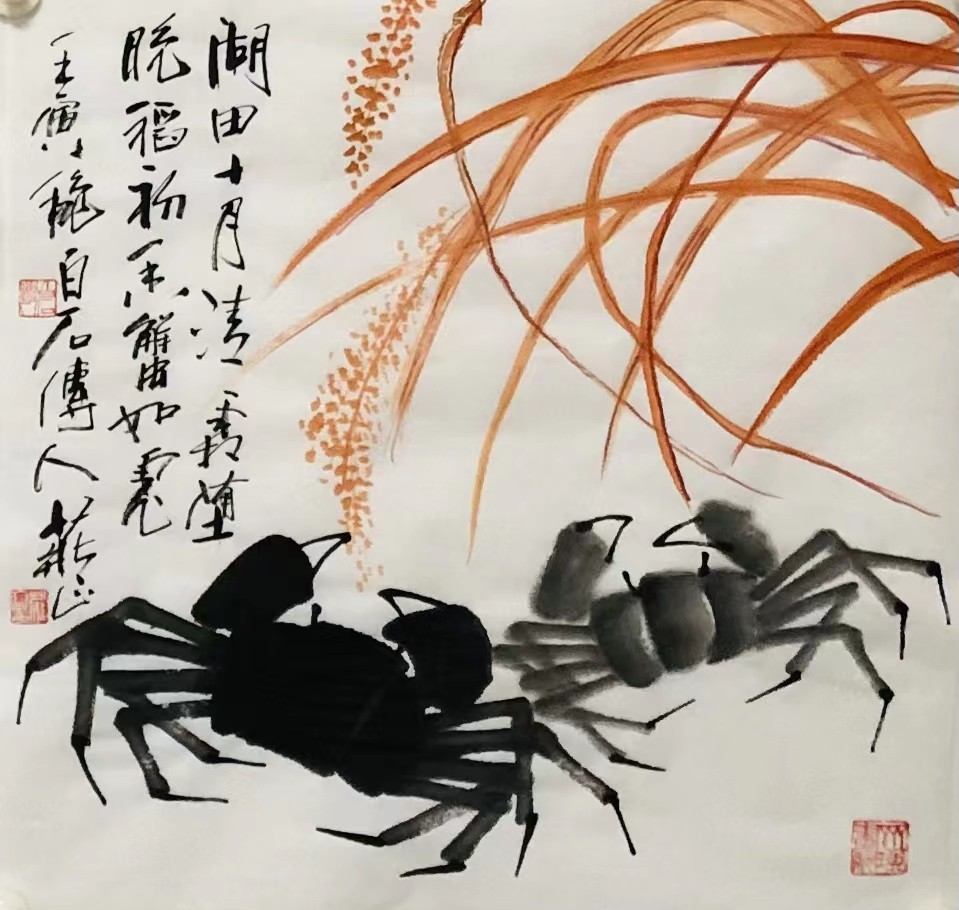 湖田十月清霜堕
晚稻初香蟹如虎
壬寅穐白石傳人